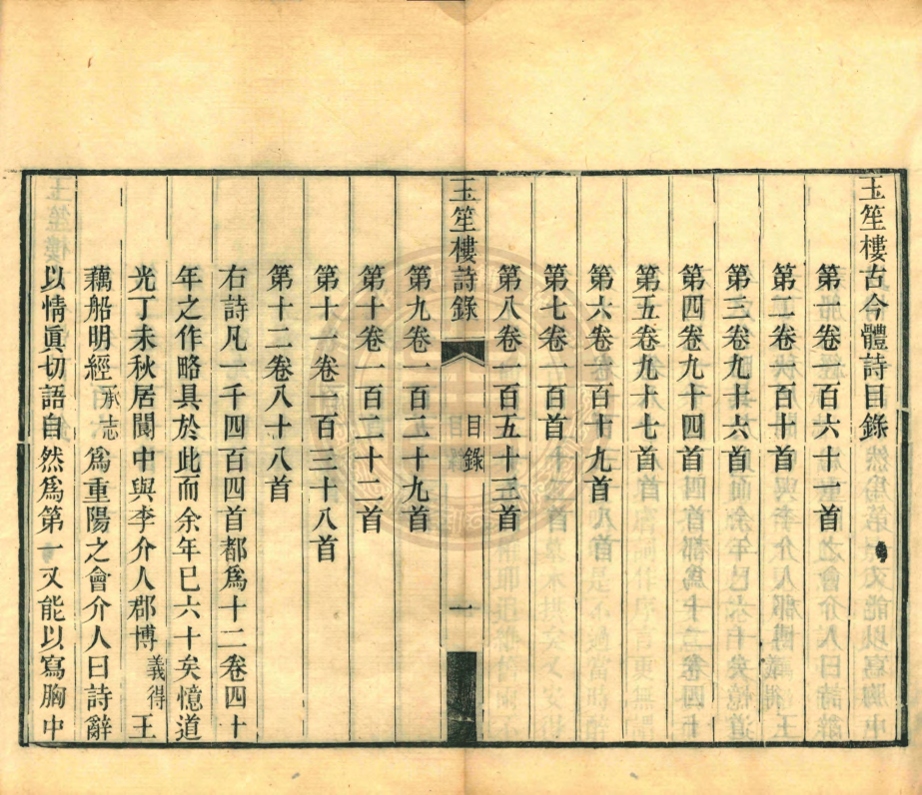 玉笙樓古今體詩目錄
第一卷一百六十一首
第二卷一百十首
第三卷九十六首
第四卷九十四首
第五卷九十七首
第六卷一百十九首
第七卷一百首
第八卷一百五十三首
玉笙樓詩錄 目錄 一
第九卷一百二十九首
第十卷一百二十二首
第十一卷一百三十八首
第十二卷八十八首
右詩凡一千四百四首都爲十二卷四十
年之作略具於此而余年巳六十矣憶道
光丁未秋居閩中與李介人郡博義得王
藕船明經承志爲重陽之會介人曰詩辭
以情眞切語自然爲第一又能以寫胸中